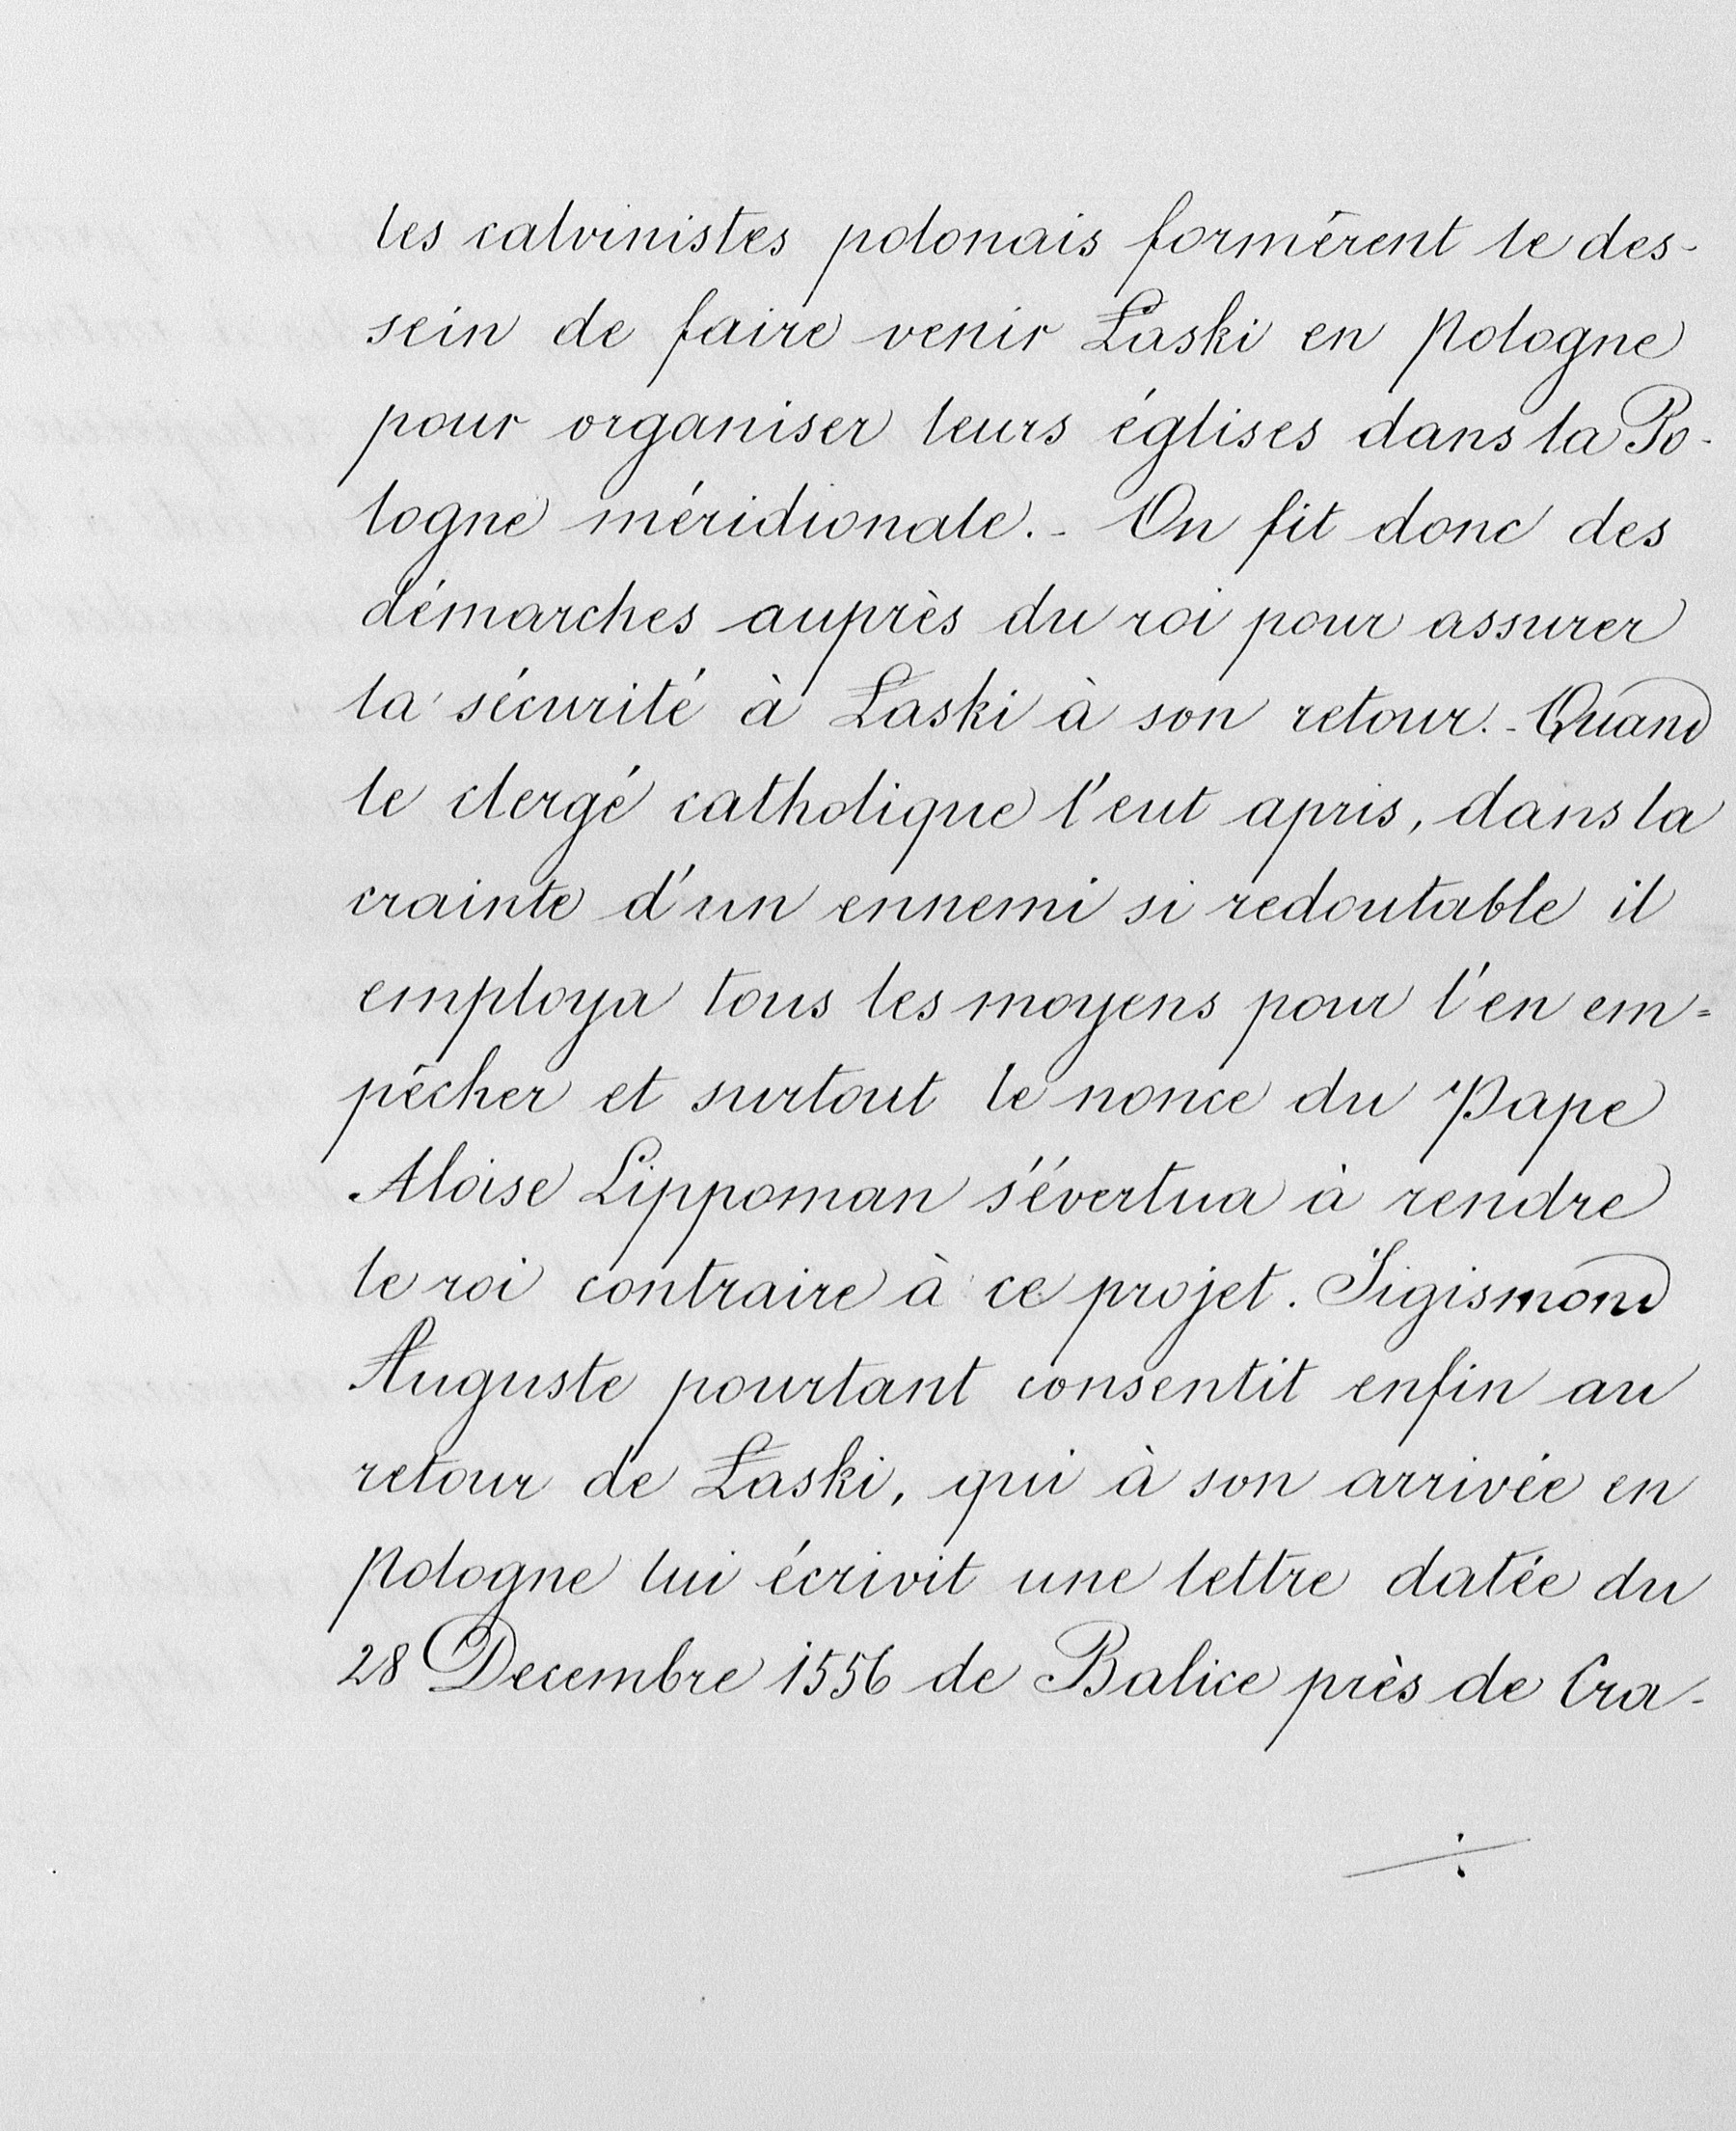 les calvinistes polonais formèrent le des-
sein de faire venir Łaski en Pologne
pour organiser leurs églises dans la Po-
logne méridionale.- On fit donc des
démarches auprès du roi pour assurer
la sécurité à Łaski à son retour.- Quand
le clergé catholique l'eut apris, dans la
crainte d'un ennemi si redoutable il
employa tous les moyens pour l'en em=
pêcher et surtout le nonce du Pape
Aloise Lippoman s'évertua à rendre
le roi contraire à ce projet. Sigismond
Auguste pourtant consentit enfin au
retour de Łaski, qui à son arrivée en
Pologne lui écrivit une lettre datée du
28 Decembre 1556 de Balice près de Cra-